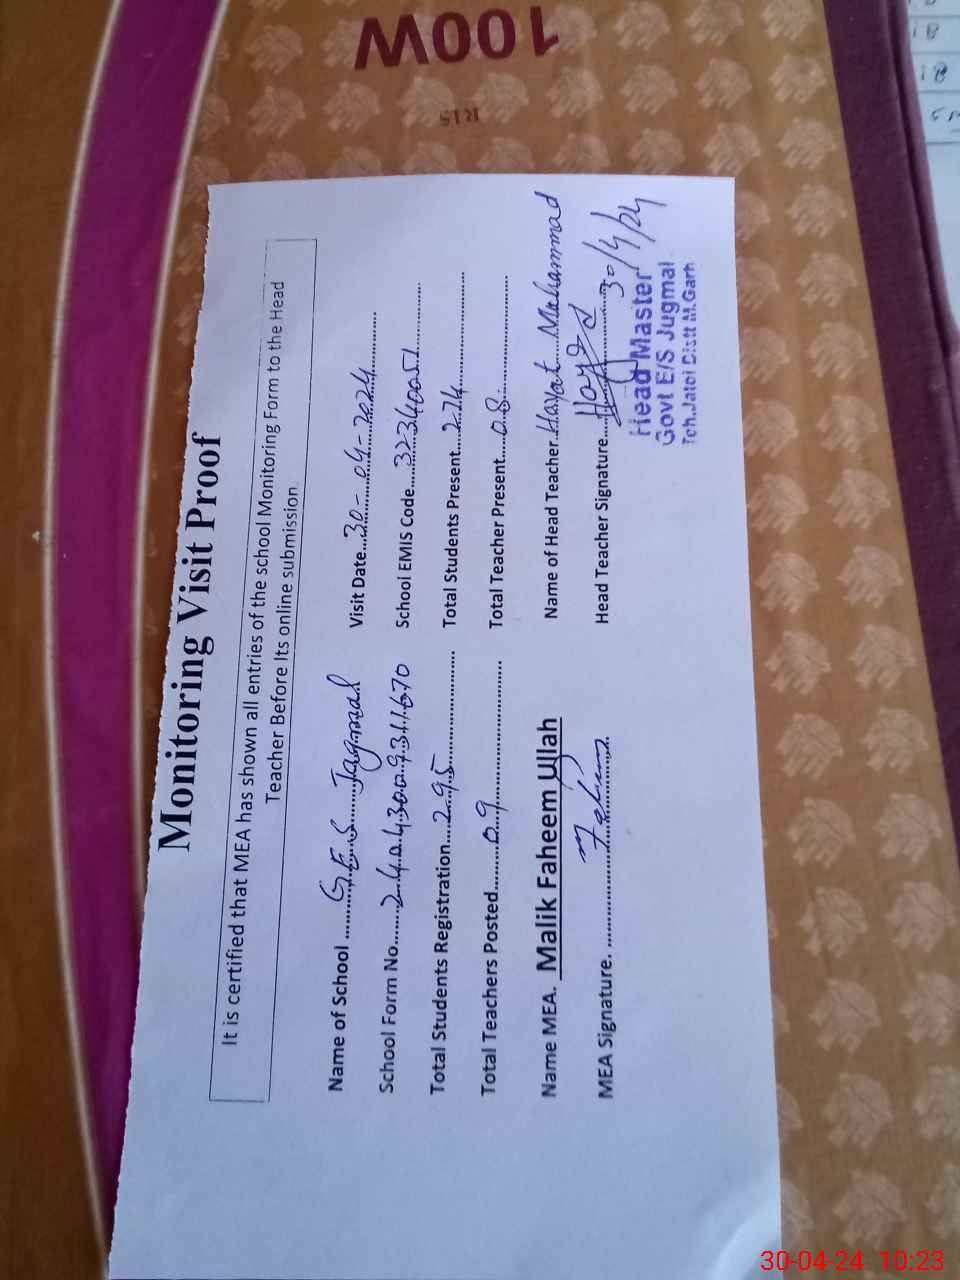 100W
R15
Monitoring Visit Proof
It is certified that MEA has shown all entries of the school Monitoring Form to the Head
Teacher Before Its online submission
Name of School ........ G.E.S Jagmal
Visit Date...30-04-2024
School Form No.......
School EMIS Code....32340051
Total Students Registration....295
Total Students Present...274
Total Teachers Posted....09
Total Teacher Present....08
Name MEA. Malik Faheem Ullah
Name of Head Teacher. Hayat Muhammad
MEA Signature. Fahim
Head Teacher Signature. Hayat 30/4/24
Head Master
Govt E/S Jugmal
Teh.Jatoi Distt M.Garh
30-04-24 10:23